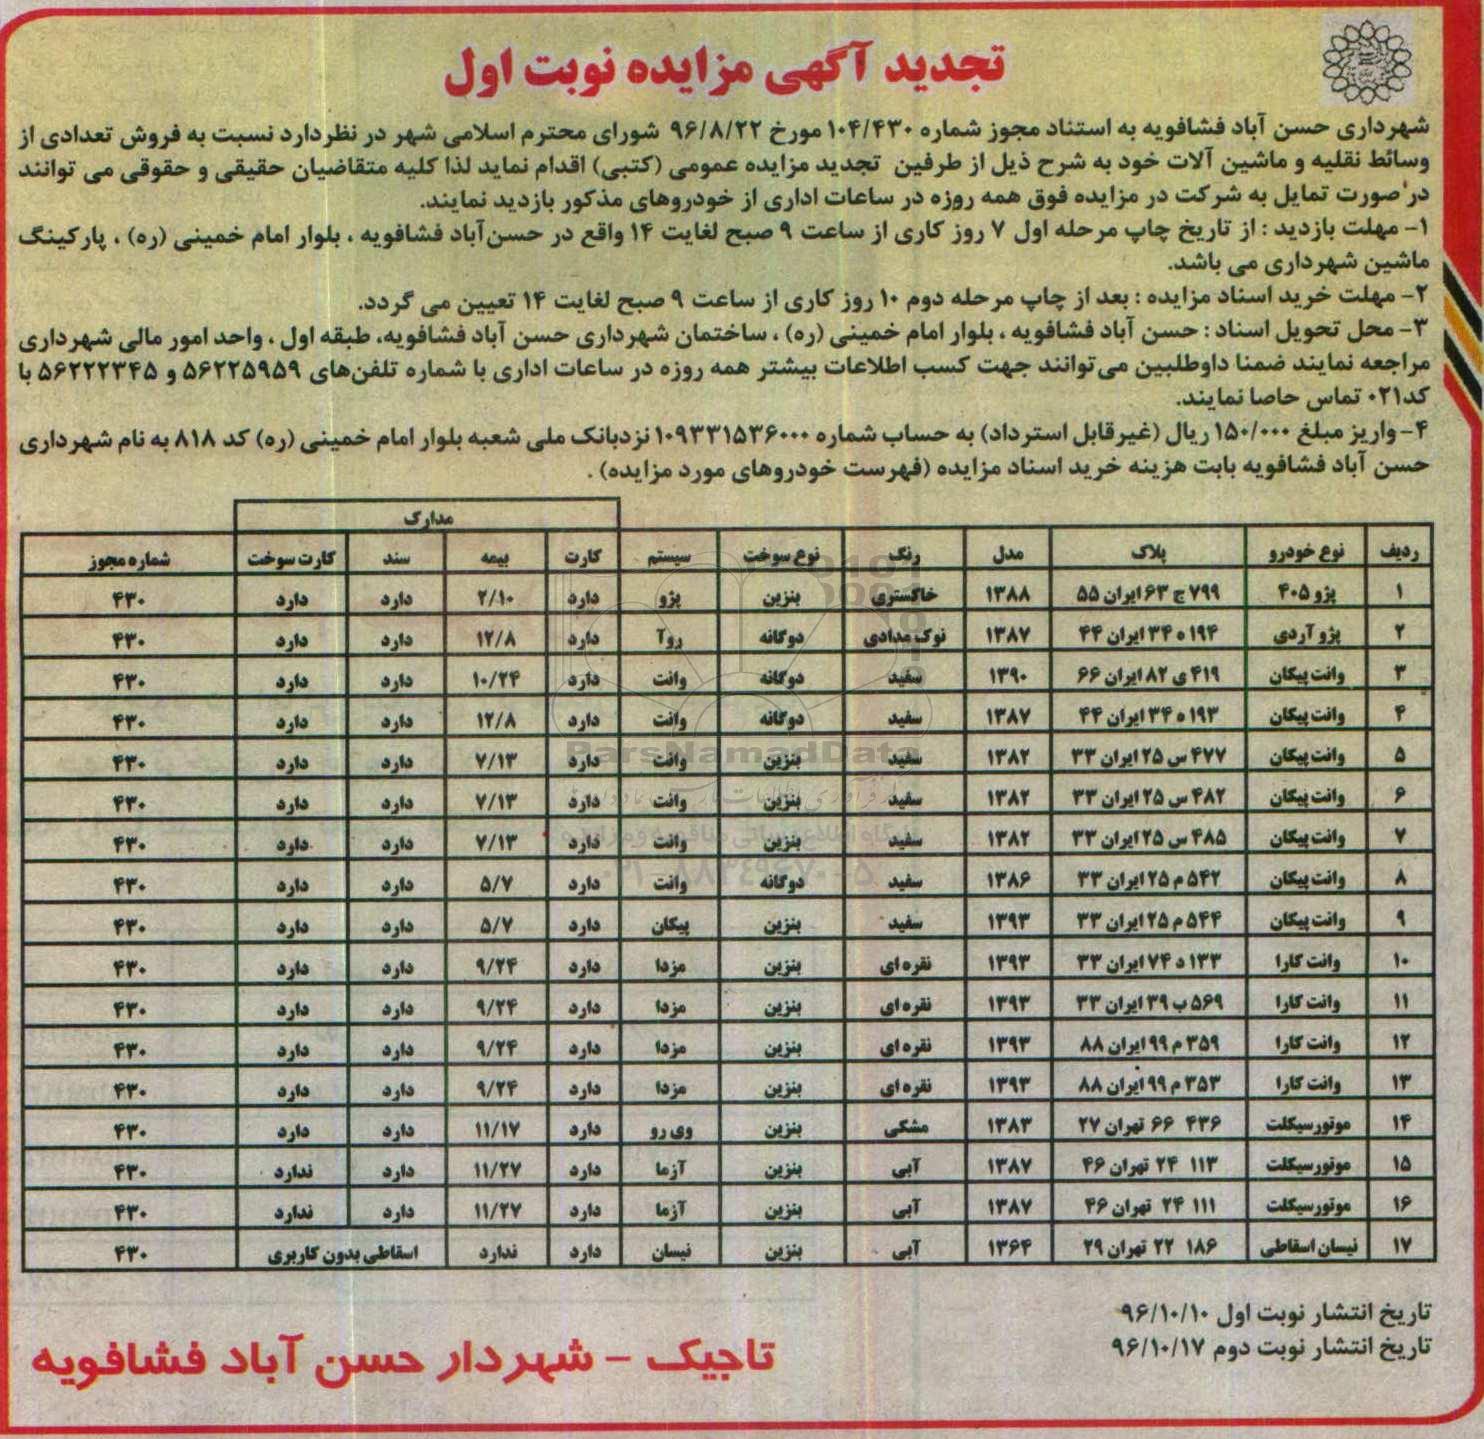 تجدید آگهی مزایده نوبت اول
شهرداری حسن آباد فشافویه به استناد مجوز شماره ۱۰۴/۴۳۰ مورخ ۹۶/۸/۲۲ شورای محترم اسلامی شهر در نظردارد نسبت به فروش تعدادی از
وسائط نقلیه و ماشین آلات خود به شرح ذیل از طرفین تجدید مزایده عمومی (کتبی) اقدام نماید لذا کلیه متقاضیان حقیقی و حقوقی می توانند
در صورت تمایل به شرکت در مزایده فوق همه روزه در ساعات اداری از خودروهای مذکور بازدید نمایند.
۱- مهلت بازدید : از تاریخ چاپ مرحله اول ۷ روز کاری از ساعت ۹ صبح لغایت ۱۴ واقع در حسن‌آباد فشافویه ، بلوار امام خمینی (ره) ، پارکینگ
ماشین شهرداری می باشد.
۲- مهلت خرید اسناد مزایده : بعد از چاپ مرحله دوم ۱۰ روز کاری از ساعت ۹ صبح لغایت ۱۴ تعیین می گردد.
۳- محل تحویل اسناد : حسن آباد فشافویه ، بلوار امام خمینی (ره) ، ساختمان شهرداری حسن آباد فشافویه، طبقه اول ، واحد امور مالی شهرداری
مراجعه نمایند ضمنا داوطلبین می‌توانند جهت کسب اطلاعات بیشتر همه روزه در ساعات اداری با شماره تلفن‌های ۵۶۲۲۵۹۵۹ و ۵۶۲۲۲۳۴۵ با
کد۰۲۱ تماس حاصا نمایند.
۴- واریز مبلغ ۱۵۰/۰۰۰ ریال (غیرقابل استرداد) به حساب شماره ۱۰۹۳۳۱۵۳۶۰۰۰ نزدبانک ملی شعبه بلوار امام خمینی (ره) کد ۸۱۸ به نام شهرداری
حسن آباد فشافویه بابت هزینه خرید اسناد مزایده (فهرست خودروهای مورد مزایده) .
مدارک
ردیف نوع خودرو پلاک مدل رنگ نوع سوخت سیستم کارت بیمه سند کارت سوخت شماره مجوز
۱ پژو ۴۰۵ ۷۹۹ ج ۶۳ ایران ۵۵ ۱۳۸۸ خاکستری بنزین پژو دارد ۲/۱۰ دارد دارد ۴۳۰
۲ پژو آردی ۱۹۴ ه ۳۴ ایران ۴۴ ۱۳۸۷ نوک مدادی دوگانه روآ دارد ۱۲/۸ دارد دارد ۴۳۰
۳ وانت پیکان ۴۱۹ ی ۸۲ ایران ۶۶ ۱۳۹۰ سفید دوگانه وانت دارد ۱۰/۲۴ دارد دارد ۴۳۰
۴ وانت پیکان ۱۹۳ ه ۳۴ ایران ۴۴ ۱۳۸۷ سفید دوگانه وانت دارد ۱۲/۸ دارد دارد ۴۳۰
۵ وانت پیکان ۴۷۷ س ۲۵ ایران ۳۳ ۱۳۸۲ سفید بنزین وانت دارد ۷/۱۳ دارد دارد ۴۳۰
۶ وانت پیکان ۴۸۲ س ۲۵ ایران ۳۳ ۱۳۸۲ سفید بنزین وانت دارد ۷/۱۳ دارد دارد ۴۳۰
۷ وانت پیکان ۴۸۵ س ۲۵ ایران ۳۳ ۱۳۸۲ سفید بنزین وانت دارد ۷/۱۳ دارد دارد ۴۳۰
۸ وانت پیکان ۵۴۲ م ۲۵ ایران ۳۳ ۱۳۸۶ سفید دوگانه وانت دارد ۵/۷ دارد دارد ۴۳۰
۹ وانت پیکان ۵۴۴ م ۲۵ ایران ۳۳ ۱۳۹۳ سفید بنزین پیکان دارد ۵/۷ دارد دارد ۴۳۰
۱۰ وانت کارا ۱۳۳ د ۷۴ ایران ۳۳ ۱۳۹۳ نقره ای بنزین مزدا دارد ۹/۲۴ دارد دارد ۴۳۰
۱۱ وانت کارا ۵۶۹ ب ۳۹ ایران ۳۳ ۱۳۹۳ نقره ای بنزین مزدا دارد ۹/۲۴ دارد دارد ۴۳۰
۱۲ وانت کارا ۳۵۹ م ۹۹ ایران ۸۸ ۱۳۹۳ نقره ای بنزین مزدا دارد ۹/۲۴ دارد دارد ۴۳۰
۱۳ وانت کارا ۳۵۳ م ۹۹ ایران ۸۸ ۱۳۹۳ نقره ای بنزین مزدا دارد ۹/۲۴ دارد دارد ۴۳۰
۱۴ موتورسیکلت ۴۳۶ ۶۶ تهران ۲۷ ۱۳۸۳ مشکی بنزین وی رو دارد ۱۱/۱۷ دارد دارد ۴۳۰
۱۵ موتورسیکلت ۱۱۳ ۲۴ تهران ۴۶ ۱۳۸۷ آبی بنزین آزما دارد ۱۱/۲۷ دارد ندارد ۴۳۰
۱۶ موتورسیکلت ۱۱۱ ۲۴ تهران ۴۶ ۱۳۸۷ آبی بنزین آزما دارد ۱۱/۲۷ دارد ندارد ۴۳۰
۱۷ نیسان اسقاطی ۱۸۶ ۲۲ تهران ۲۹ ۱۳۶۴ آبی بنزین نیسان دارد ندارد اسقاطی بدون کاربری ۴۳۰
ParsNamadData
تاریخ انتشار نوبت اول ۹۶/۱۰/۱۰
تاریخ انتشار نوبت دوم ۹۶/۱۰/۱۷
تاجیک – شهردار حسن آباد فشافویه